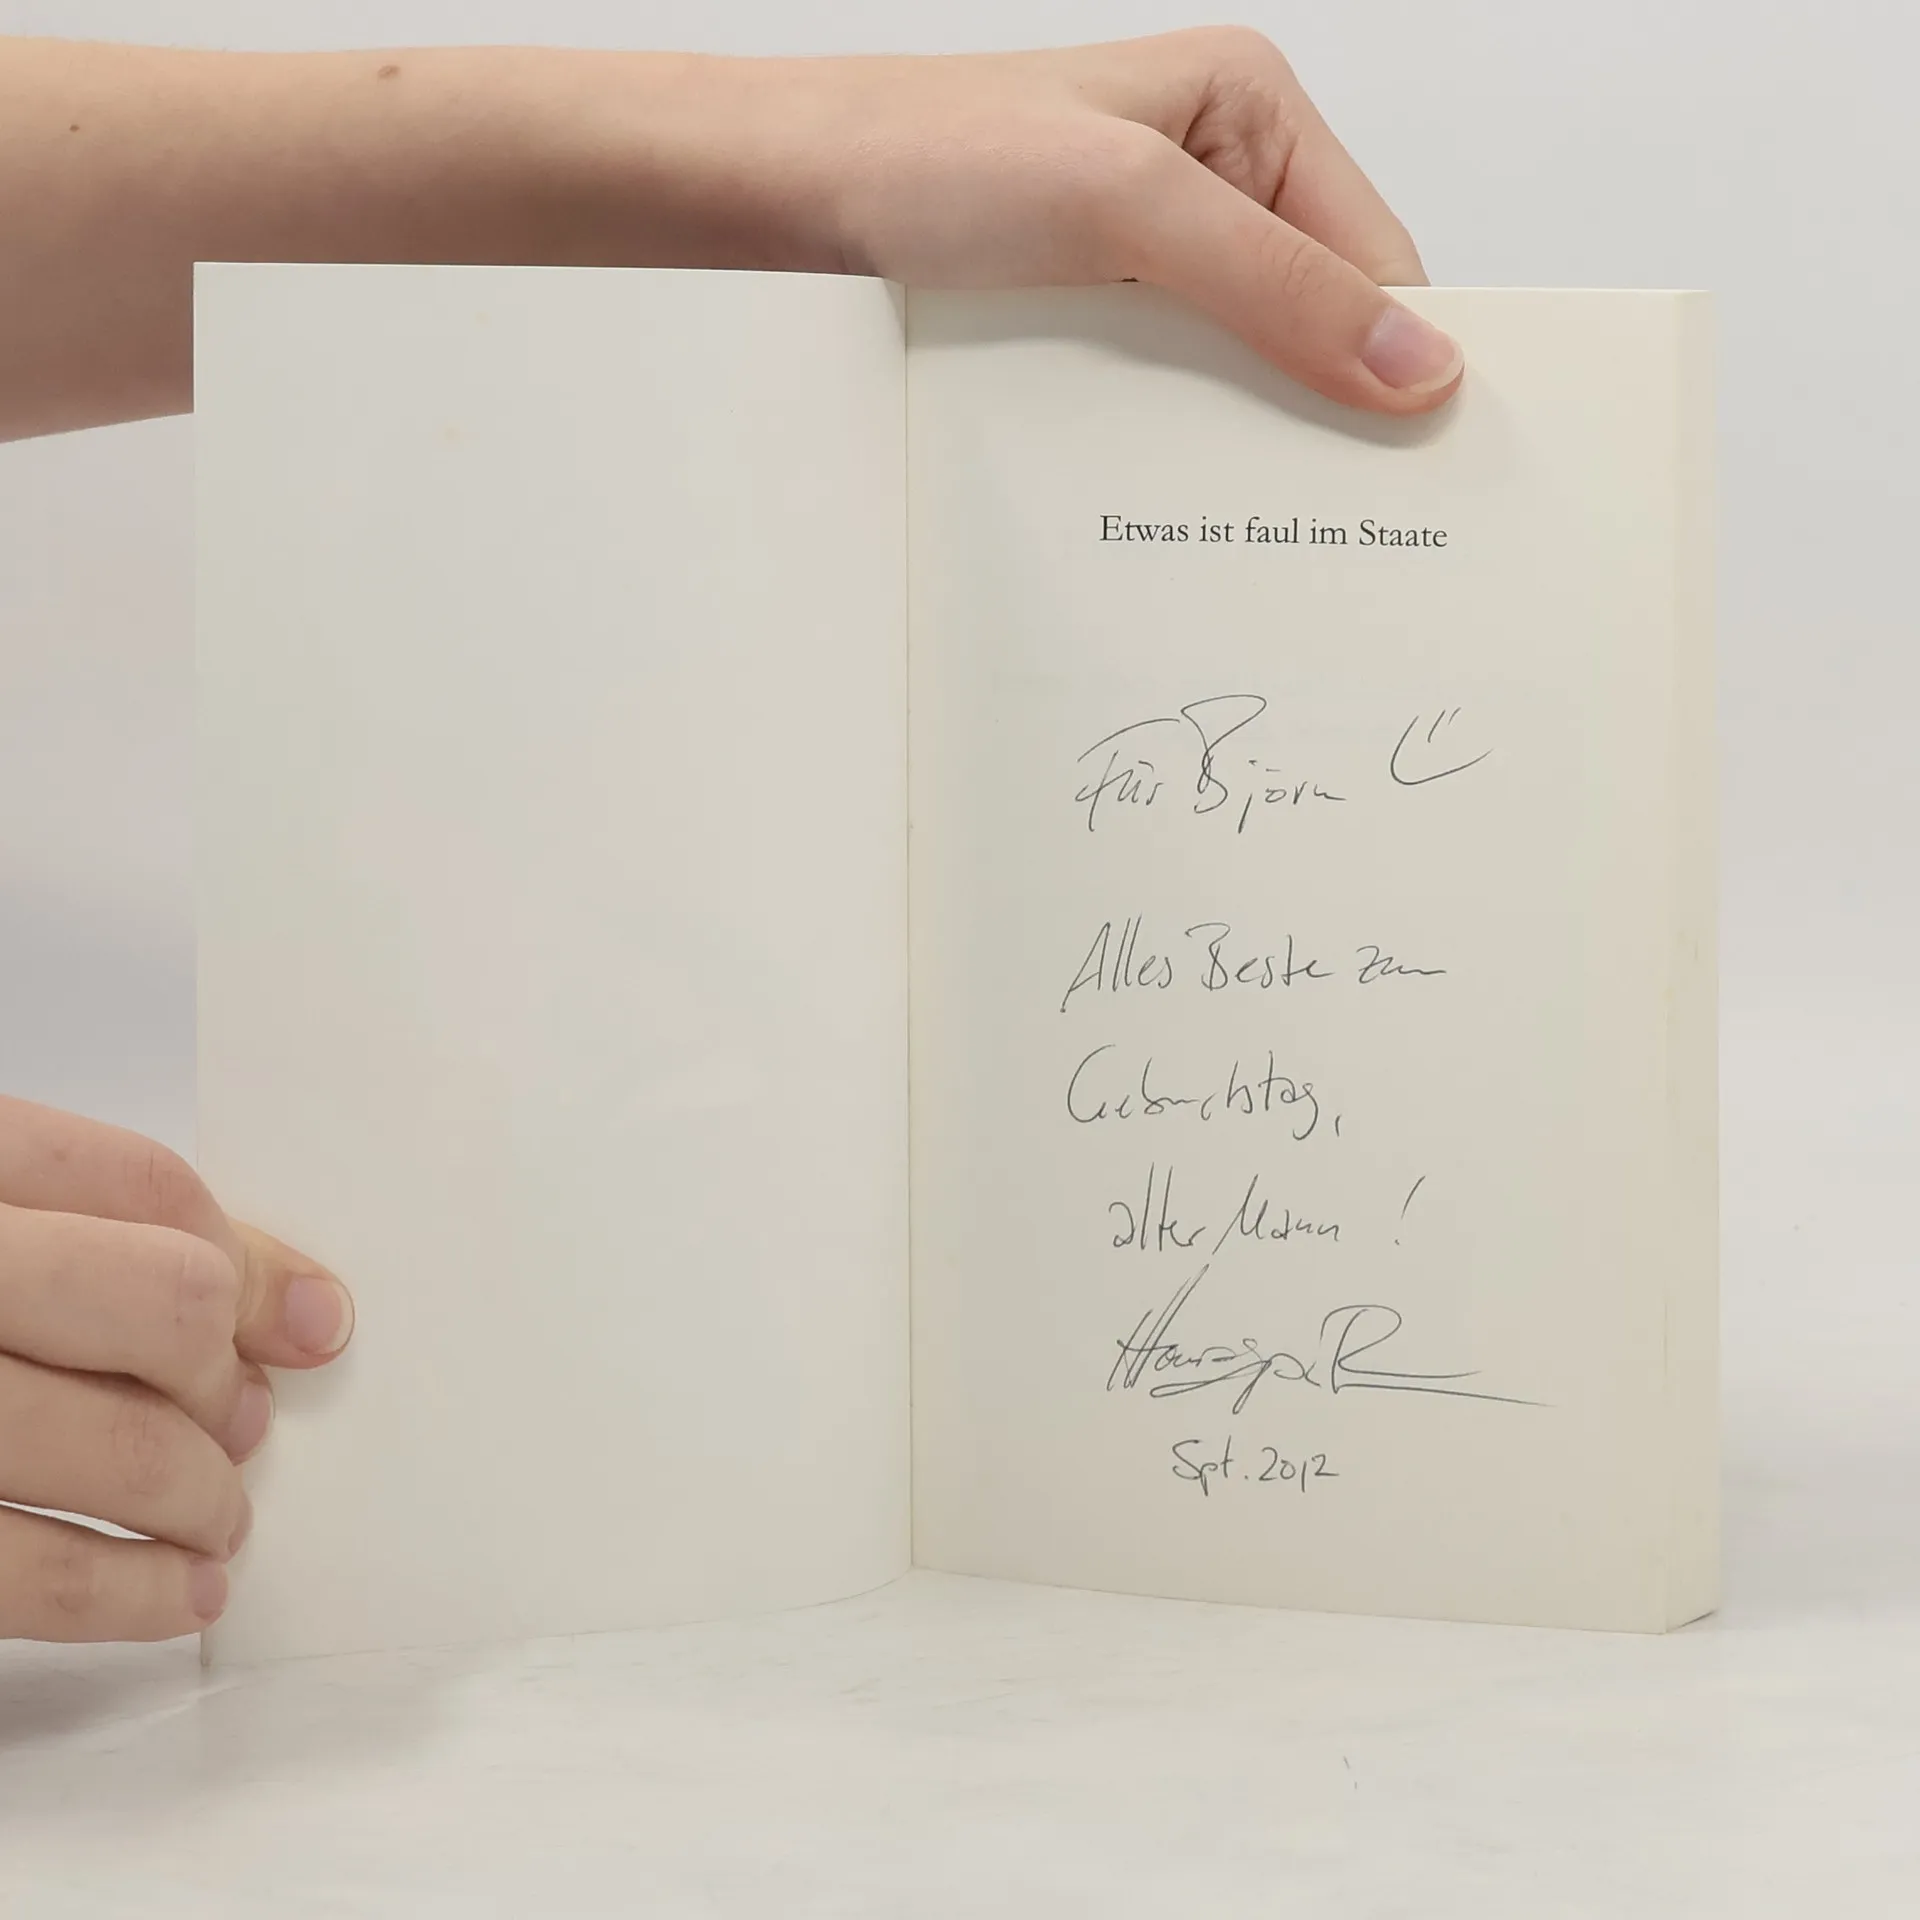 Etwas ist faul im Staate
Für Björn
Alles Beste zum
Geburtstag,
alter Mann!
Spt. 2012